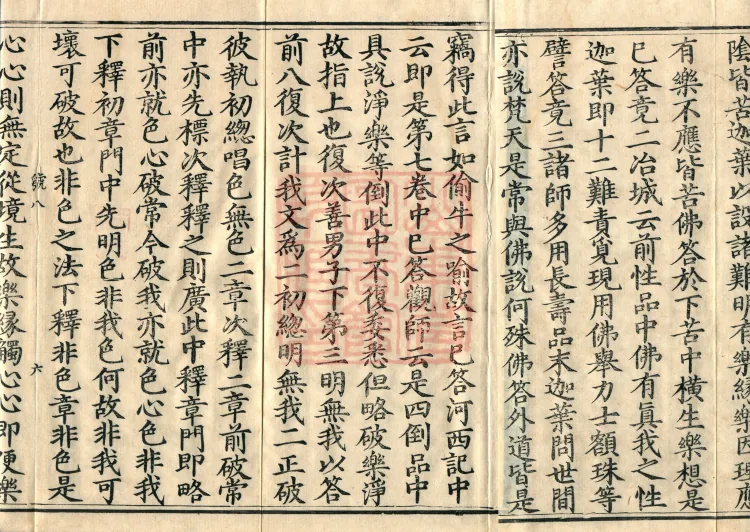 陰皆苦迦葉以設諸難明有樂緣樂因理應
有樂不應皆苦佛答於下苦中橫生樂想是
已答竟二冶城云前性品中佛有真我之性
迦葉即十二難責覓現用佛舉力士額珠等
譬答竟三諸師多用長壽品末迦葉問世間
亦說梵天是常與佛說何殊佛答外道皆是
竊得此言如偷牛之喻故言已答河西記中
云即是第七卷中已答觀師云是四倒品中
具說淨樂等倒此中不復委悉但略破樂淨
故指上也復次善男子下第三明無我以答
前八復次計我文為二初總明無我二正破
彼執初總唱色無色二章次釋二章前破常
中亦先標次釋釋之則廣此中釋章門即略
前亦就色心破常今破我亦就色心色非我
下釋初章門中先明色非我色何故非我可
壞可破故也非色之法下釋非色章非色是
心心則無定從境生故樂緣觸心心即便樂
號八
六